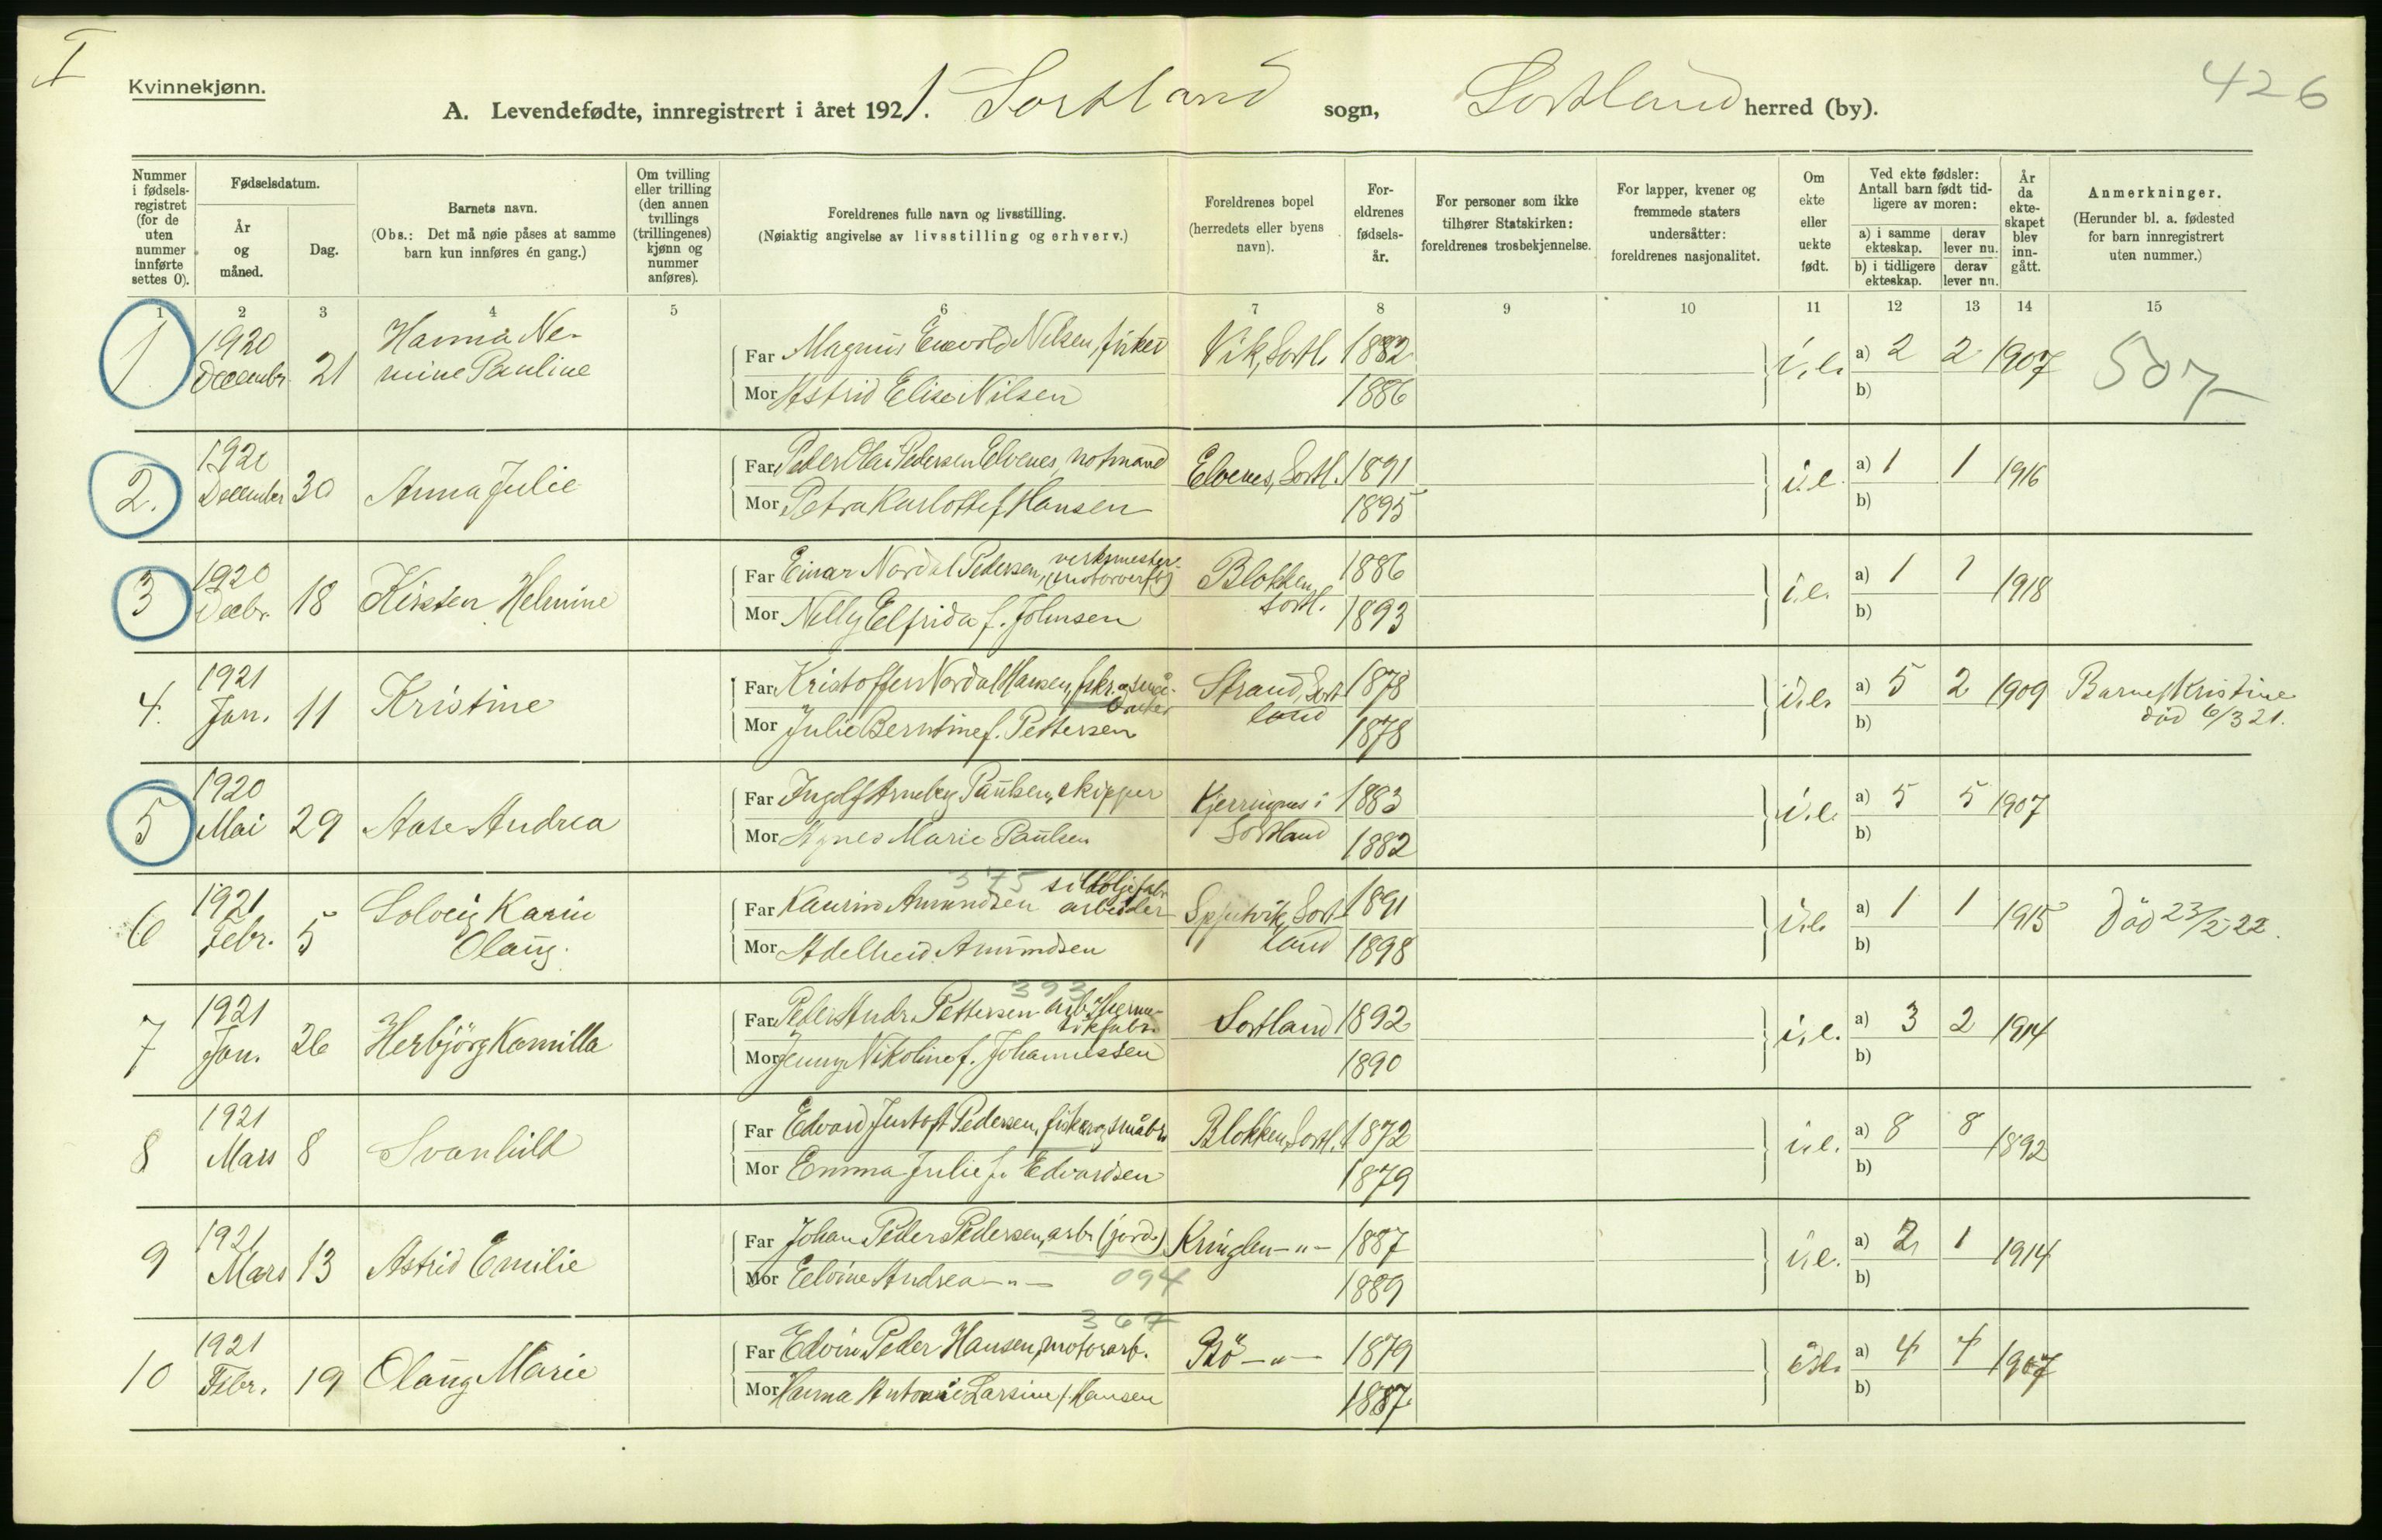 I
Kvinnekjønn.
426
A. Levendefødte, innregistrert i året 1921. Sortland sogn, Sortland herred (by).
Nummer i fødsels-registret (for de uten nummer innførte settes 0).
Fødselsdatum.
År og måned.
Dag.
Barnets navn.
(Obs.: Det må nøie påses at samme barn kun innføres én gang.)
Om tvilling eller trilling (den annen tvillings (trillingenes) kjønn og nummer anføres).
Foreldrenes fulle navn og livsstilling.
(Nøiaktig angivelse av livsstilling og erhverv.)
Foreldrenes bopel (herredets eller byens navn).
For-eldrenes fødsels-år.
For personer som ikke tilhører Statskirken: foreldrenes trosbekjennelse.
For lapper, kvener og fremmede staters undersåtter: foreldrenes nasjonalitet.
Om ekte eller uekte født.
Ved ekte fødsler: Antall barn født tid-ligere av moren:
a) i samme ekteskap. derav lever nu.
b) i tidligere ekteskap. derav lever nu.
År da ekte-skapet blev inn-gått.
Anmerkninger.
(Herunder bl. a. fødested for barn innregistrert uten nummer.)
1 2 3 4 5 6 7 8 9 10 11 12 13 14 15
1 1920 Decembr. 21 Hanna Ne-mine Pauline
Far Magnus Enevold Nilsen, fisker Vik, Sortl. 1882 i.e. a) 2 2 1907 507
Mor Astrid Elise Nilsen 1886 b)
2. 1920 December 30 Anna Julie
Far Peder Olai Pedersen Elvenes, notmand Elvenes, Sortl. 1891 i.e. a) 1 1 1916
Mor Petra Karlotte f Hansen 1895 b)
3 1920 Decbr. 18 Kirsten Helmine
Far Einar Nordal Pedersen, verksmester (motorverk) Blokken, Sortl. 1886 i.e. a) 1 1 1918
Mor Nelly Elfrida f. Johnsen 1893 b)
4. 1921 Jan. 11 Kristine
Far Kristoffer Nordal Hansen, fskr. og små-bruker Strand, Sortland 1878 i.e. a) 5 2 1909 Barnet Kristine död 6/3 21.
Mor Julie Berntine f. Pettersen 1878 b)
5 1920 Mai 29 Aase Andrea
Far Ingolf Arneberg Paulsen, skipper Kjerringnes i Sortland 1883 i.e. a) 5 5 1907
Mor Agnes Marie Paulsen 1882 b)
6 1921 Febr. 5 Solveig Karin Olaug.
375
Far Laurits Amundsen sildoljefabr. arbeider Spjutvik, Sortland 1891 i.e. a) 1 1 1915 Död 23/2 22.
Mor Adelheid Amundsen 1898 b)
7 1921 Jan. 26 Herbjörg Kamilla
393
Far Peder Andr. Pettersen arb. Herme-tikfabr. Sortland 1892 i.e. a) 3 2 1914
Mor Jenny Nikoline f. Johannessen 1890 b)
8 1921 Mars 8 Svanhild
Far Edvard Justoft Pedersen, fisker og småbr. Blokken, Sortl. 1872 i.e. a) 8 8 1892
Mor Emma Julie f. Edvardsen 1879 b)
9 1921 Mars 13 Astrid Emilie
Far Johan Peder Pedersen, arb. (jord.) Kringlen —"— 1887 i.e. a) 2 1 1914
Mor Eelvine Andrea —"— 094 1889 b)
10 1921 Febr. 19 Olaug Marie
367
Far Edvin Peder Hansen, motorarb. Bö —"— 1879 i.e. a) 4 4 1907
Mor Hanna Antonie Larsine f Hansen 1887. b)